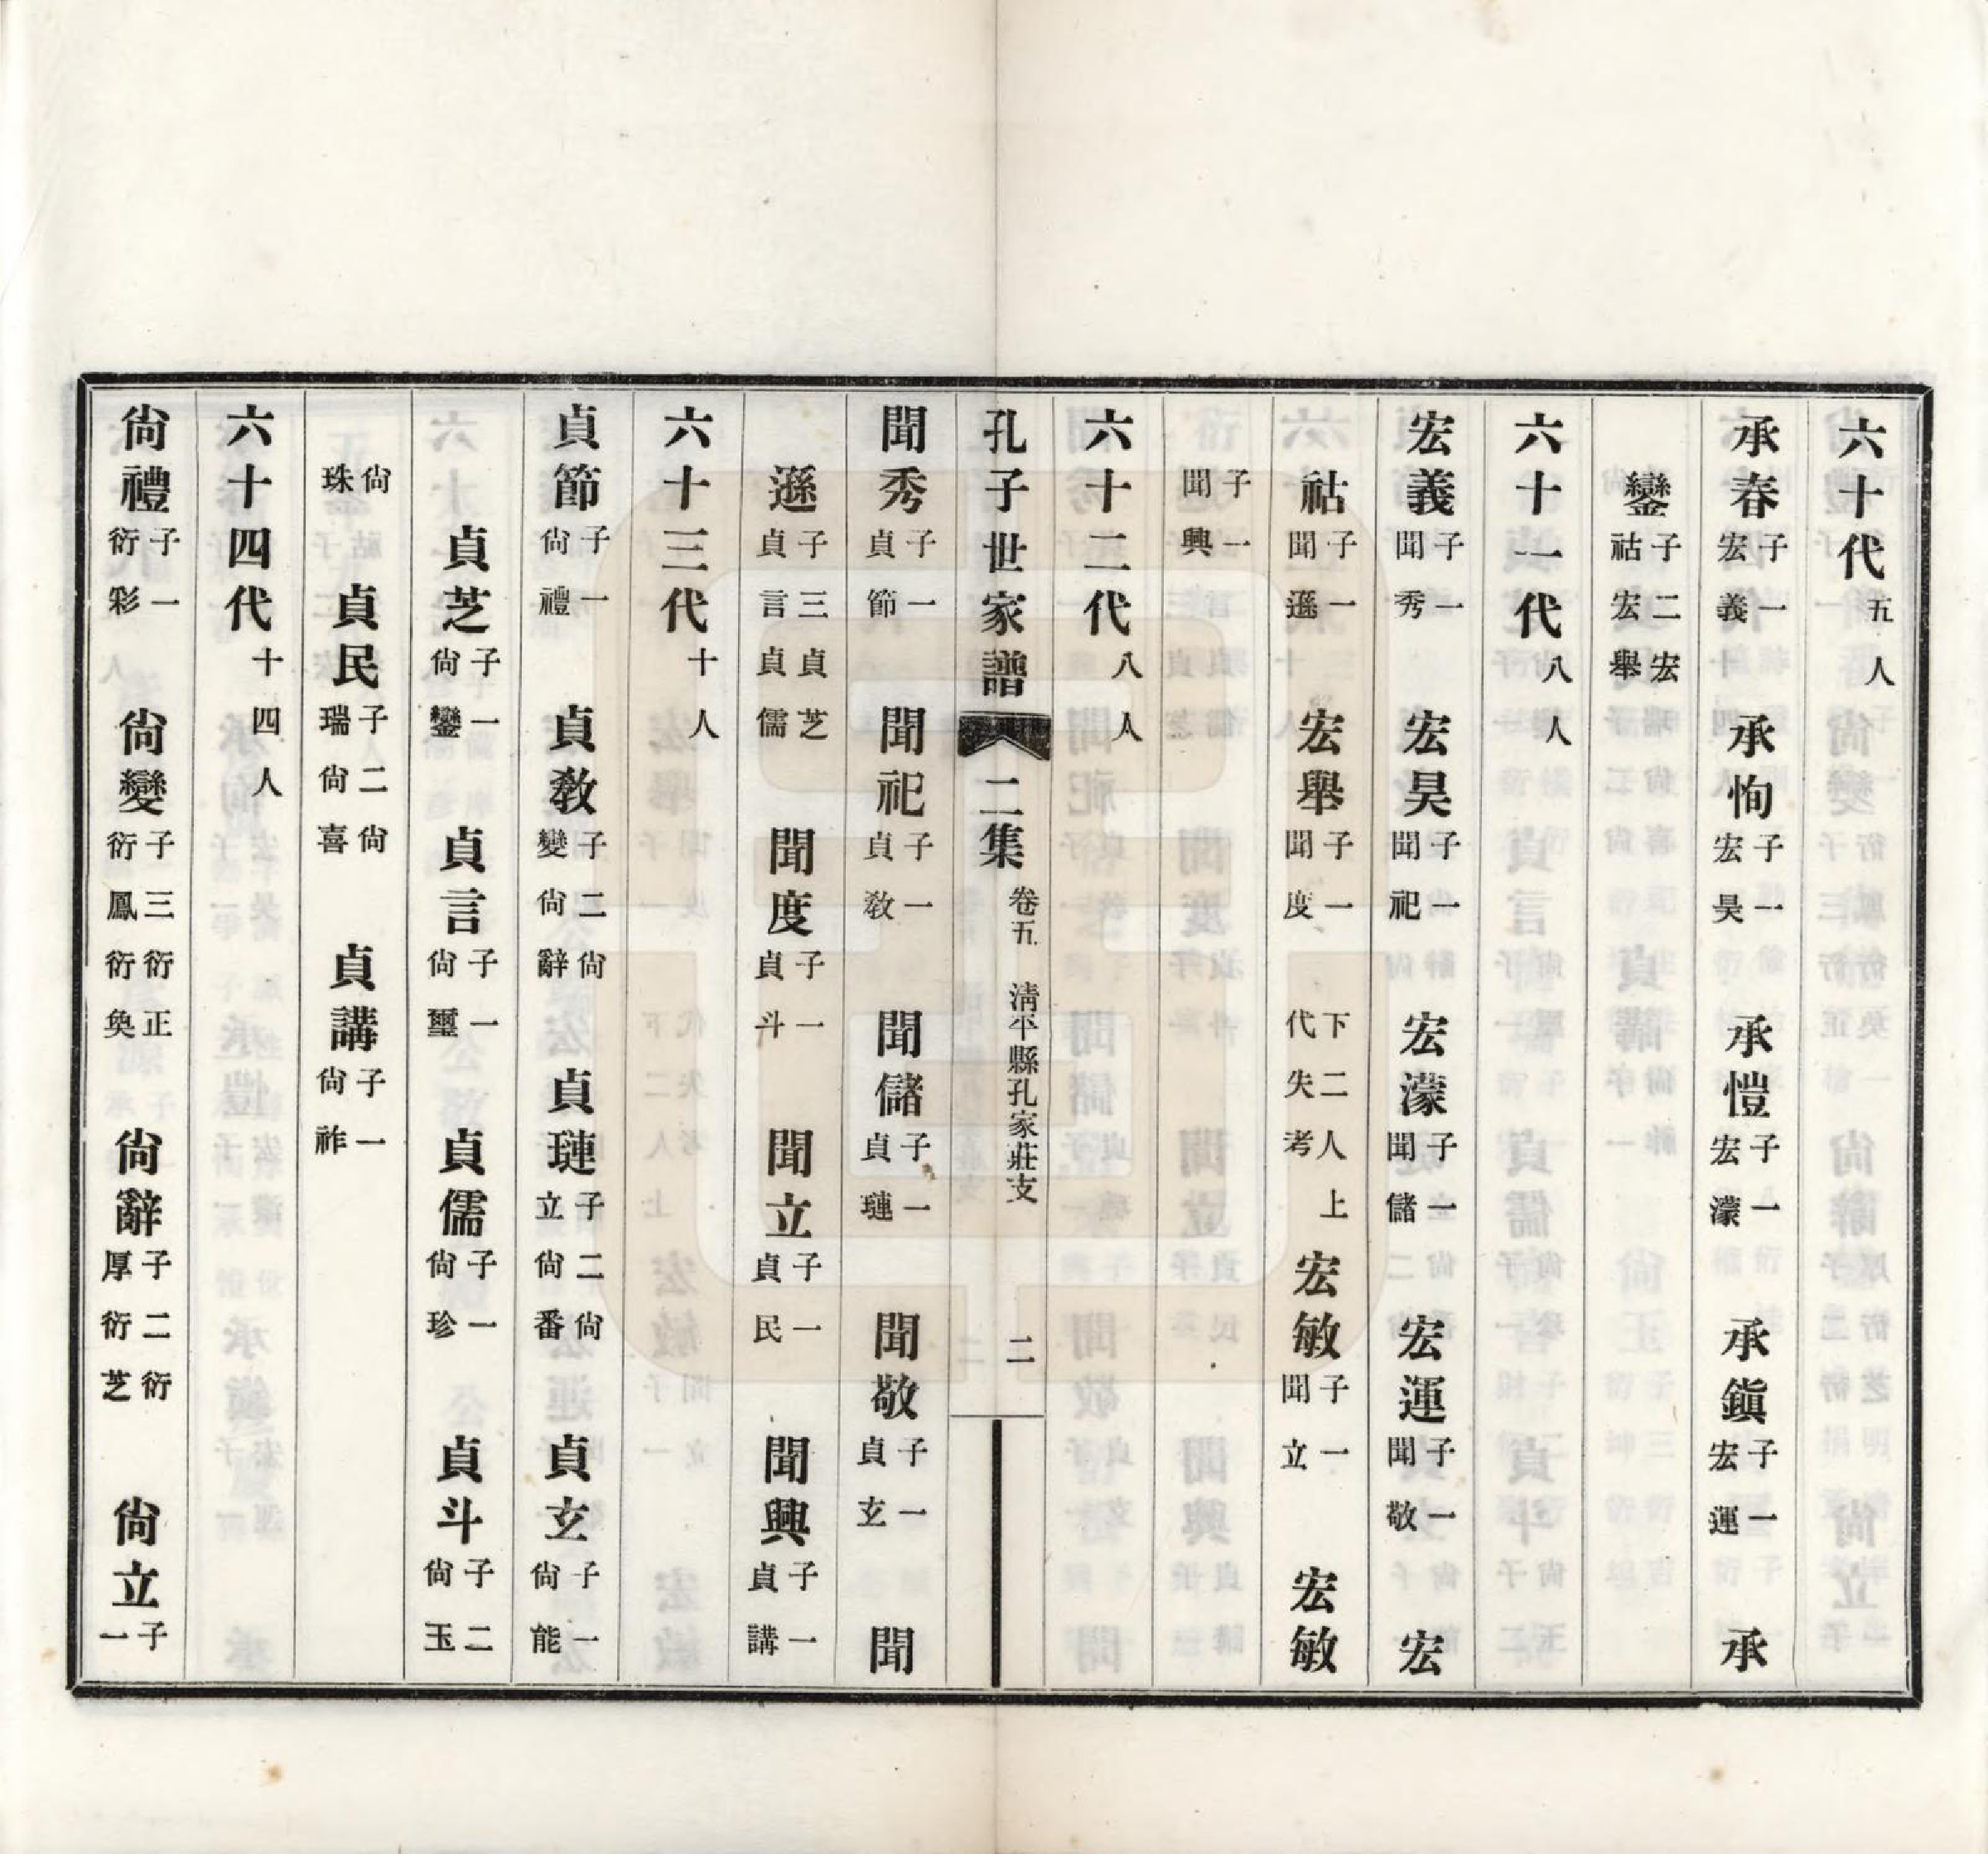 六十代五人
承春子一宏義 承恂子一宏昊 承愷子一宏濛 承鎮子一宏運 承
鑾子二宏祜宏舉
六十一代八人
宏義子一聞秀 宏昊子一聞祀 宏濛子一聞儲 宏運子一聞敬 宏
祜子一聞遜 宏舉子一聞度 下二人上代失考 宏敏子一聞立 宏敏
子一聞興
六十二代八人
孔子世家譜 二集 卷五 清平縣孔家莊支 二
聞秀子一貞節 聞祀子一貞敎 聞儲子一貞璉 聞敬子一貞玄 聞
遜子三貞芝貞言貞儒 聞度子一貞斗 聞立子一貞民 聞興子一貞講
六十三代十人
貞節子一尙禮 貞敎子二尙變尙辭 貞璉子二尙立尙番 貞玄子一尙能
貞芝子一尙鑾 貞言子一尙璽 貞儒子一尙珍 貞斗子二尙玉
尙珠 貞民子二尙瑞尙喜 貞講子一尙祚
六十四代十四人
尙禮子一衍彩 尙變子三衍正衍鳳衍奐 尙辭子二衍芝衍厚 尙立子一